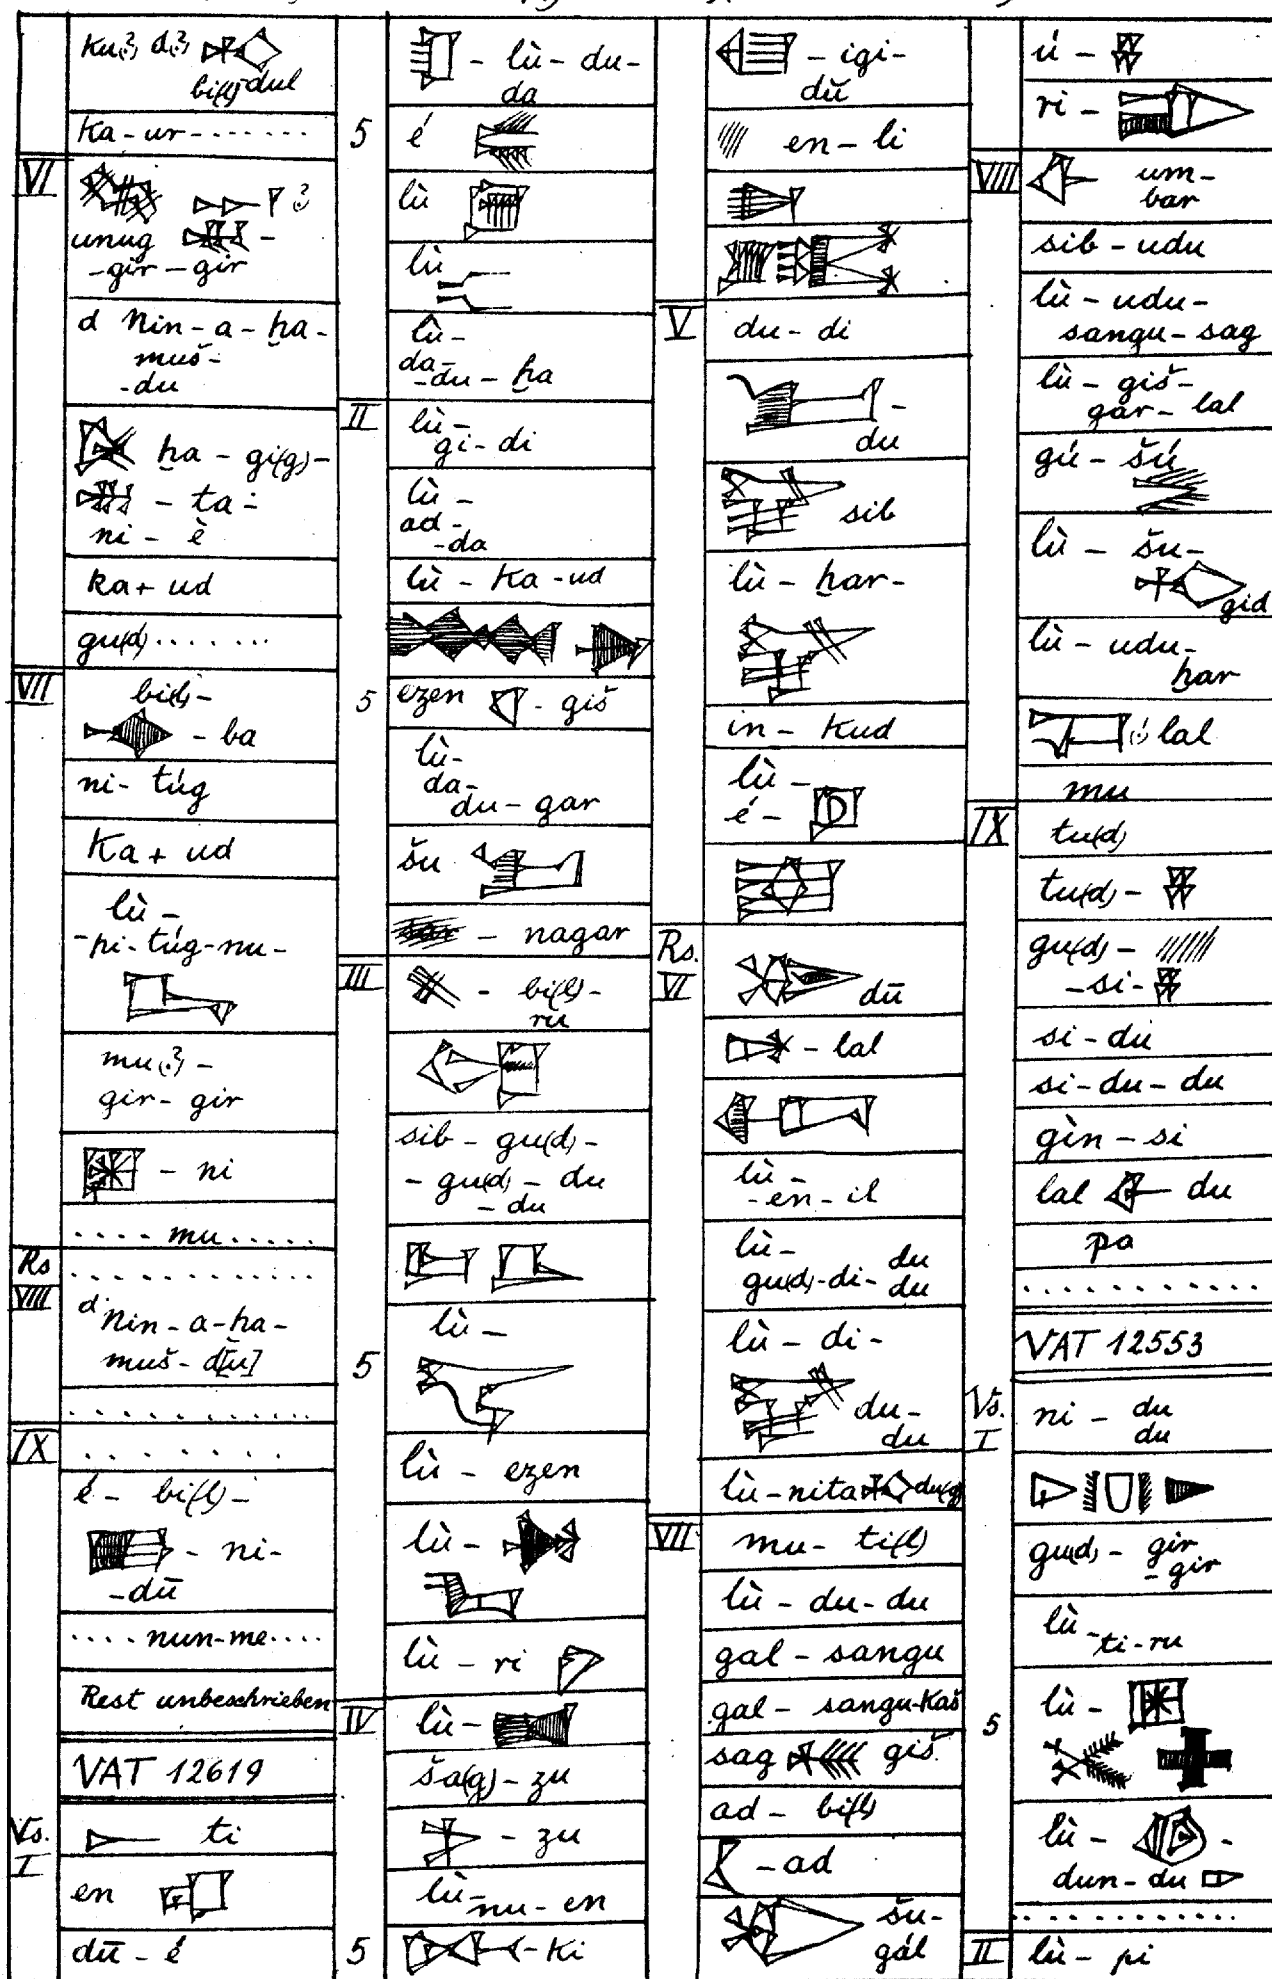 bi(l)-dul
ka - ur - . . . . . . .
VI
unug
- gir - gir
d Nin - a - ḫa -
muš -
- du
ḫa - gi(g) -
- ta -
ni - è
ka + ud
gu(d) . . . . . . .
VII
bi(l) -
- ba
ni - túg
Ka + ud
lù -
- pi - túg - nu -
mu(?) -
gir - gir
- ni
. . . . mu . . . . .
Rs
VIII
. . . . . . . . . . . .
d Nin - a - ḫa -
muš - d[ū]
. . . . . . . . . . . .
IX
. . . . . . .
é - bi(l) -
- ni -
- dū
. . . . nun - me . . . .
Rest unbeschrieben
VAT 12619
Vs.
I
ti
en
dū - é
- lù - du -
da
5
é
lù
lù
lù -
da -
- du - ḫa
II
lù -
gi - di
lù -
ad -
- da
lù - ka - ud
5
ezen - giš
lù -
da -
du - gar
šu
- nagar
III
- bi(l) -
ru
sib - gu(d) -
- gu(d) - du
- du
5
lù -
lù - ezen
lù -
lù - ri
IV
lù -
ša(g) - zu
- zu
lù -
nu - en
5
- ki
- igi -
dŭ
en - li
V
du - di
-
du
sib
lù - ḫar -
in - kud
lù -
é -
Rs.
VI
dū
- lal
lù -
- en - il
lù -
gu(d) - di - du
du
lù - di -
du -
du
lù - nita du(g)
VII
mu - ti(l)
lù - du - du
gal - sangu
gal - sangu - kaš
sag giš
ad - bi(l)
- ad
šu -
gál
ú -
ri -
VIII
um -
bar
sib - udu
lù - udu -
sangu - sag
lù - giš -
gar - lal
gú - šú
lù - šu -
gid
lù - udu -
ḫar
lal
mu
IX
tu(d)
tu(d) -
gu(d) -
- si -
si - du
si - du - du
gìn - si
lal du
pa
. . . . . . . . . .
VAT 12553
Vs.
I
ni - du
du
gu(d) - gir
- gir
lù -
ti - ru
5
lù -
lù - -
dun - du
. . . . . . . . . .
II
lù - pi